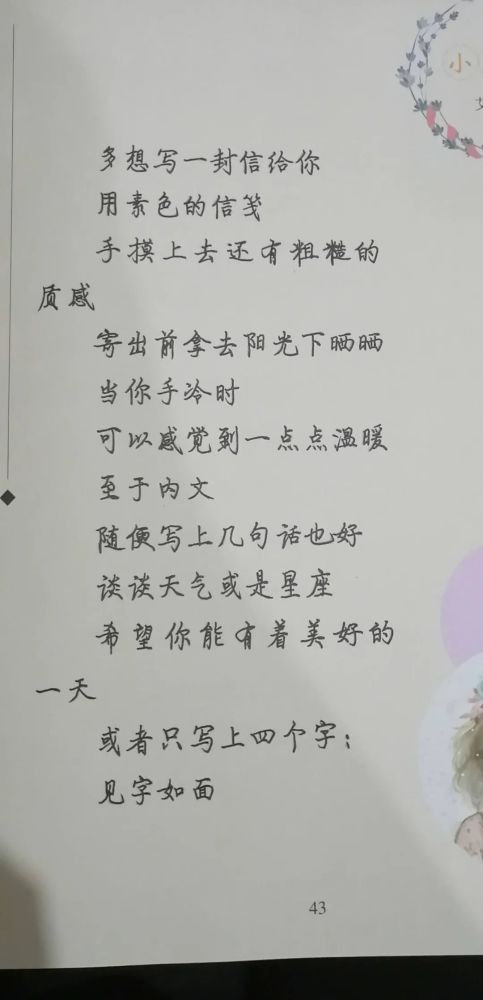 小
多想写一封信给你
用素色的信笺
手摸上去还有粗糙的
质感
寄出前拿去阳光下晒晒
当你手冷时
可以感觉到一点点温暖
至于内文
随便写上几句话也好
谈谈天气或是星座
希望你能有着美好的
一天
或者只写上四个字：
见字如面
43